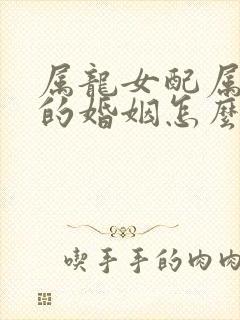 属龍女配属
的婚姻怎麼
喫手手的肉肉